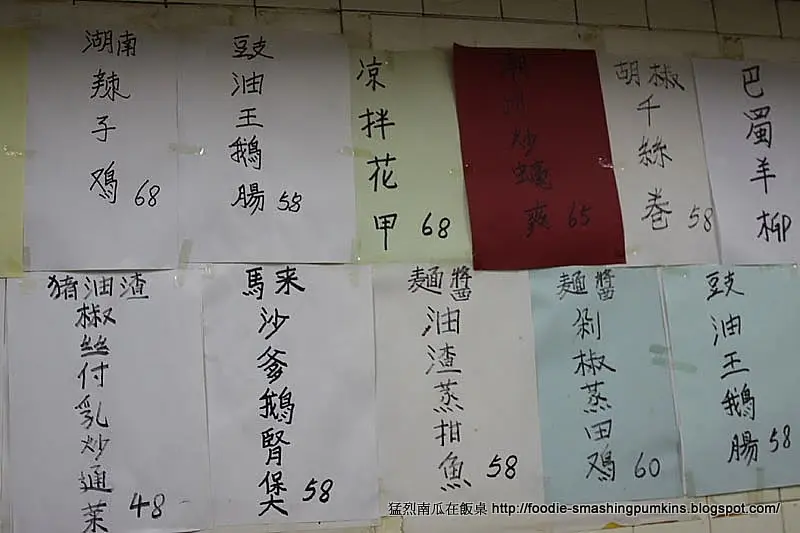 湖南
辣
子
鸡 68
豉
油
王
鵝
腸 58
凉
拌
花
甲 68
潮
州
炒
蜆
爽 65
胡椒
千
絲
卷 58
巴
蜀
羊
柳
猪油渣
椒
丝
付
乳
炒
通
菜 48
馬来
沙
爹
鵝
腎
煲 58
麵醬
油
渣
蒸
柑
魚 58
麵醬
剁
椒
蒸
田
鸡 60
豉
油
王
鵝
腸 58
猛烈南瓜在飯桌 http://foodie-smashingpumkins.blogspot.com/